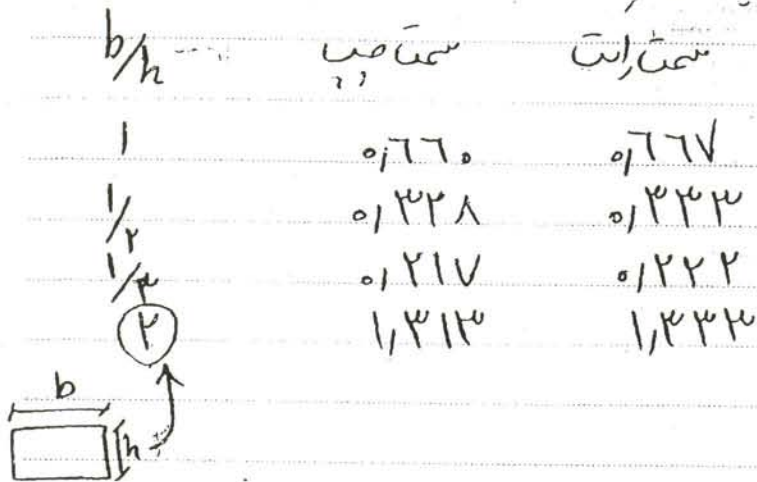 b/h سمت چپ سمت راست
۱ ۰,۶۶۰ ۰,۶۶۷
۱/۲ ۰,۳۲۸ ۰,۳۳۳
۱/۳ ۰,۲۱۷ ۰,۲۲۲
۲ ۱,۳۱۳ ۱,۳۳۳
b
h